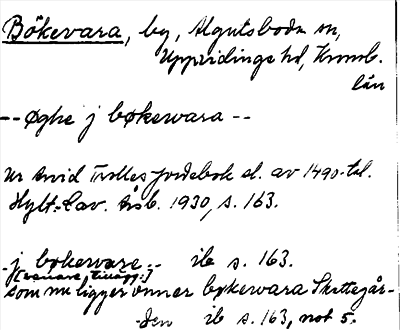 Bökevara, by, Algutsboda sn,
Uppvidinge hd, Kronob.
län
-- Øghe j bøkewara --
Ur Arvid Trolles jordebok sl. av 1490-tal.
Hylt.-Cav. Årsb. 1930, s. 163.
j bokeware -- ib s. 163.
[senare tillägg:]
som nu ligger vnner bøkewara Skattegår-
den ib s. 163, not 5.